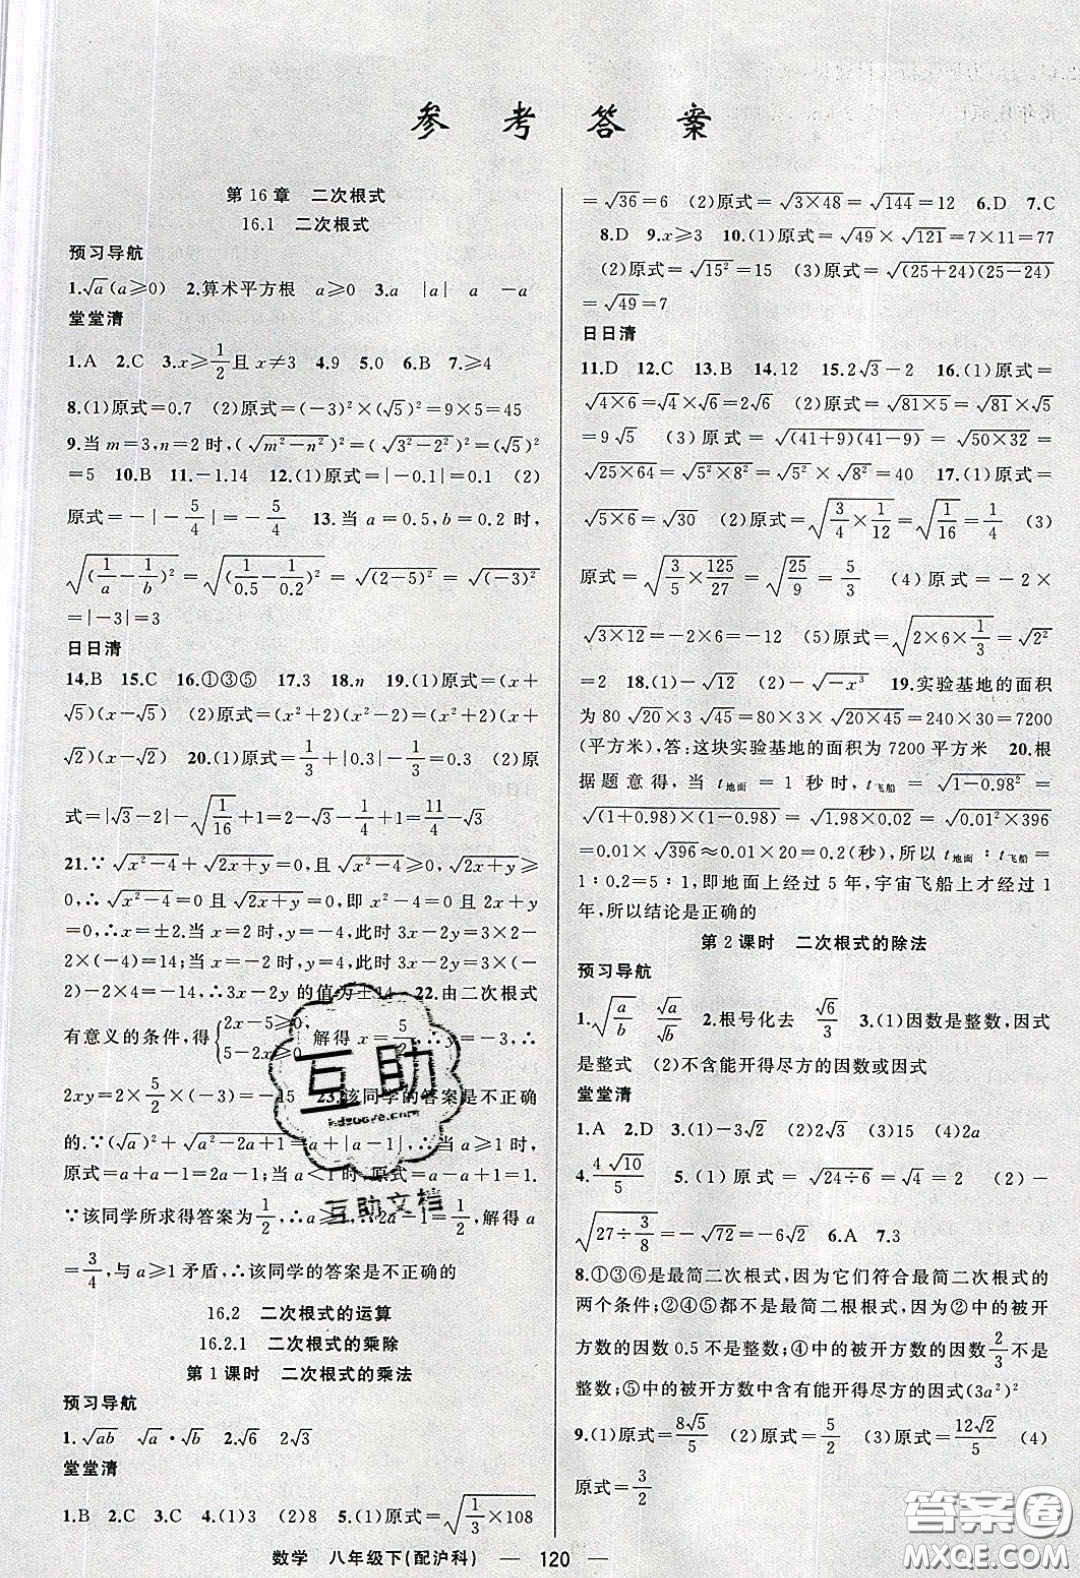 参考答案
第16章 二次根式
16.1 二次根式
预习导航
1.√a(a≥0) 2.算术平方根 a≥0 3.a |a| a -a
堂堂清
1.A 2.C 3.x≥1/2且x≠3 4.9 5.0 6.B 7.≥4
8.(1)原式=0.7 (2)原式=(-3)²×(√5)²=9×5=45
9.当m=3,n=2时,(√(m²-n²))²=(√(3²-2²))²=(√5)²
=5 10.B 11.-1.14 12.(1)原式=|-0.1|=0.1 (2)
原式=-|-5/4|=-5/4 13.当a=0.5,b=0.2时,
√((1/a-1/b)²)=√((1/0.5-1/0.2)²)=√((2-5)²)=√((-3)²)
=|-3|=3
日日清
14.B 15.C 16.①③⑤ 17.3 18.n 19.(1)原式=(x+
√5)(x-√5) (2)原式=(x²+2)(x²-2)=(x²+2)(x+
√2)(x-√2) 20.(1)原式=1/3+|0.3|-1/3=0.3 (2)原
式=|√3-2|-√(1/16)+1=2-√3-1/4+1=11/4-√3
21.∵√(x²-4)+√(2x+y)=0,√(x²-4)≥0,√(2x+y)≥
0,∴√(x²-4)=0且√(2x+y)=0,即x²-4=0且2x+y=
0,∴x=±2.当x=2时,y=-4,此时3x-2y=3×2-
2×(-4)=14;当x=-2时,y=4,此时3x-2y=3×(-
2)-2×4=-14,∴3x-2y的值为±14 22.由二次根式
有意义的条件,得{2x-5≥0, 5-2x≥0, 解得x=5/2,∴y=-3,∴
2xy=2×5/2×(-3)=-15 23.该同学的答案是不正确
的.∵(√a)²+√(a²-2a+1)=a+|a-1|,∴当a≥1时,
原式=a+a-1=2a-1;当a<1时,原式=a-a+1=1.
∵该同学所求得答案为1/2,∴a≥1,∴2a-1=1/2,解得a
=3/4,与a≥1矛盾,∴该同学的答案是不正确的
16.2 二次根式的运算
16.2.1 二次根式的乘除
第1课时 二次根式的乘法
预习导航
1.√ab √a·√b 2.√6 2√3
堂堂清
1.B 2.C 3.C 4.(1)3 (2)8 5.(1)原式=√(1/3×108)
=√36=6 (2)原式=√(3×48)=√144=12 6.D 7.C
8.D 9.x≥3 10.(1)原式=√49×√121=7×11=77
(2)原式=√15²=15 (3)原式=√((25+24)(25-24))
=√49=7
日日清
11.D 12.C 13.B 14.12 15.2√3-2 16.(1)原式=
√(4×6)=√4×√6=2√6 (2)原式=√(81×5)=√81×√5
=9√5 (3)原式=√((41+9)(41-9))=√(50×32)=
√(25×64)=√(5²×8²)=√5²×√8²=40 17.(1)原式=
√(5×6)=√30 (2)原式=√(3/4×1/12)=√(1/16)=1/4 (3)
原式=√(3/5×125/27)=√(25/9)=5/3 (4)原式=-2×
√(3×12)=-2×6=-12 (5)原式=√(2×6×1/3)=√2²
=2 18.(1)-√12 (2)-√(-x³) 19.实验基地的面积
为80√20×3√45=80×3×√(20×45)=240×30=7200
(平方米),答:这块实验基地的面积为7200平方米 20.根
据题意得,当t地面=1秒时,t飞船=√(1-0.98²)=
√((1+0.98)×(1-0.98))=√(1.98×0.02)=√(0.01²×396)
=0.01×√396≈0.01×20=0.2(秒),所以t地面:t飞船=
1:0.2=5:1,即地面上经过5年,宇宙飞船上才经过1
年,所以结论是正确的
第2课时 二次根式的除法
预习导航
1.√(a/b) √a/√b 2.根号化去 √6/3 3.(1)因数是整数,因式
是整式 (2)不含能开得尽方的因数或因式
堂堂清
1.A 2.D 3.(1)-3√2 (2)2√3 (3)15 (4)2a
4.4√10/5 5.(1)原式=√(24÷6)=√4=2 (2)-
√(27÷3/8)=-√72=-6√2 6.A 7.3
8.①③⑥是最简二次根式,因为它们符合最简二次根式的
两个条件;②④⑤都不是最简二根根式,因为②中的被开
方数的因数0.5不是整数;④中的被开方数的因数2/3不是
整数;⑤中的被开方数中含有能开得尽方的因式(3a²)²
9.(1)原式=8√5/5 (2)原式=5/2 (3)原式=12√2/5 (4)
原式=3/2
数学 八年级下(配沪科) — 120 —
互助
hdzuoye.com
互助文档
答案圈
MXQE.COM